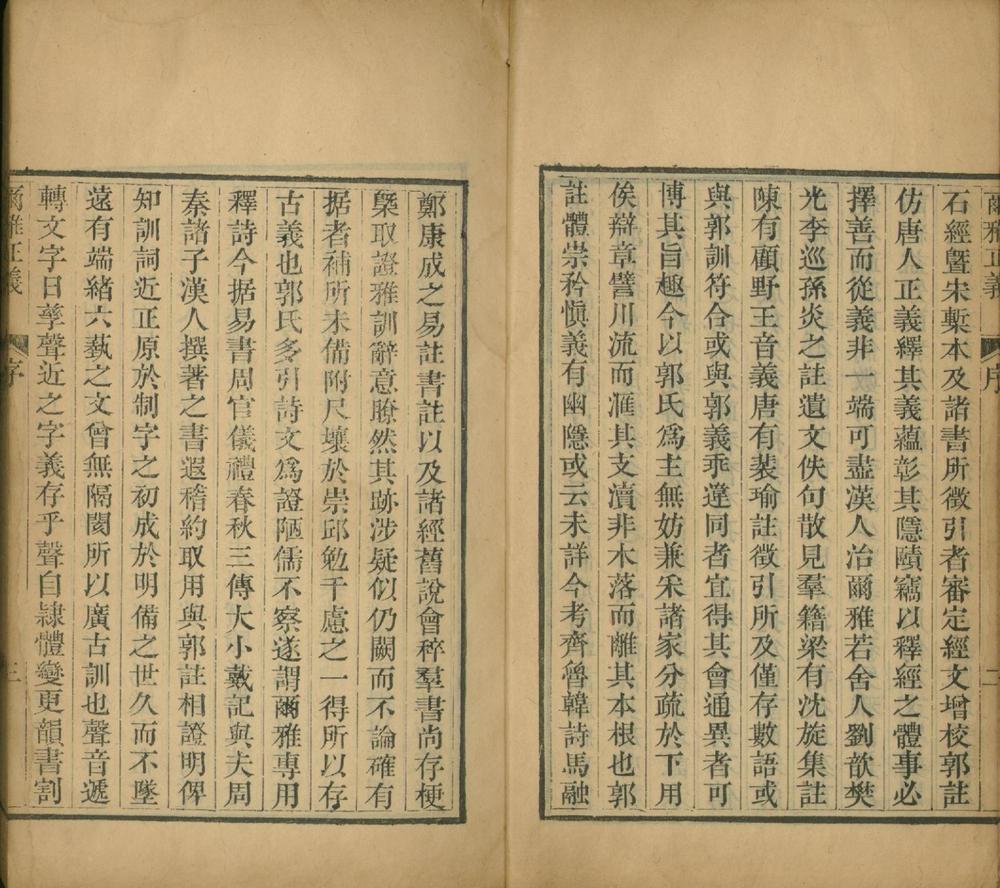 爾雅正義 序 二
石經曁宋槧本及諸書所徵引者審定經文增校郭註
仿唐人正義繹其義蘊彰其隱賾竊以釋經之體事必
擇善而從義非一端可盡漢人冶爾雅若舍人劉歆樊
光李巡孫炎之註遺文佚句散見羣籍梁有沈旋集註
陳有顧野王音義唐有裴瑜註徵引所及僅存數語或
與郭訓符合或與郭義乖違同者宜得其會通異者可
博其旨趣今以郭氏爲主無妨兼采諸家分疏於下用
俟辯章譬川流而滙其支瀆非木落而離其本根也郭
註體崇矜愼義有幽隱或云未詳今考齊魯韓詩馬融
鄭康成之易註書註以及諸經舊說會稡羣書尚存梗
槩取證雅訓辭意瞭然其跡涉疑似仍闕而不論確有
据者補所未備附尺壤於崇邱勉千慮之一得所以存
古義也郭氏多引詩文爲證陋儒不察遂謂爾雅專用
釋詩今据易書周官儀禮春秋三傳大小戴記與夫周
秦諸子漢人撰著之書遐稽約取用與郭註相證明俾
知訓詞近正原於制字之初成於明備之世久而不墜
遠有端緒六藝之文曾無隔閡所以廣古訓也聲音遞
轉文字日孳聲近之字義存乎聲自隸體變更韻書割
爾雅正義 序 三